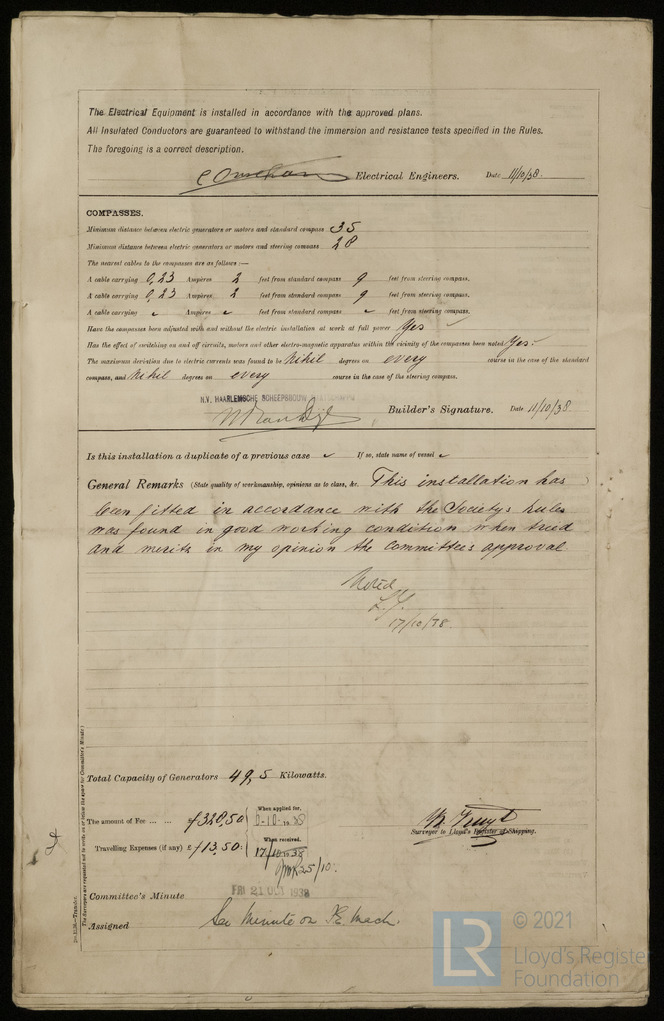 The Electrical Equipment is installed in accordance with the approved plans.
All Insulated Conductors are guaranteed to withstand the immersion and resistance tests specified in the Rules.
The foregoing is a correct description.
Electrical Engineers. Date 11/10/38.
COMPASSES.
Minimum distance between electric generators or motors and standard compass 35
Minimum distance between electric generators or motors and steering compass 28
The nearest cables to the compasses are as follows:—
A cable carrying 0,23 Ampères 2 feet from standard compass 9 feet from steering compass.
A cable carrying 0,23 Ampères 2 feet from standard compass 9 feet from steering compass.
A cable carrying Ampères feet from standard compass feet from steering compass.
Have the compasses been adjusted with and without the electric installation at work at full power Yes
Has the effect of switching on and off circuits, motors and other electro-magnetic apparatus within the vicinity of the compasses been noted Yes.
The maximum deviation due to electric currents was found to be Nihil degrees on every course in the case of the standard
compass, and Nihil degrees on every course in the case of the steering compass.
N.V. HAARLEMSCHE SCHEEPSBOUW
Builder's Signature. Date 11/10/38
Is this installation a duplicate of a previous case If so, state name of vessel
General Remarks (State quality of workmanship, opinions as to class, &c. This installation has
been fitted in accordance with the Society's Rules
was found in good working condition when tried
and merits in my opinion the Committee's approval.
Noted
17/10/38.
Total Capacity of Generators 49,5 Kilowatts.
The amount of Fee ... ... £ƒ328,50 When applied for,
Travelling Expenses (if any) £ƒ13,50: When received,
17/10/38
25/10.
Surveyor to Lloyd's Register of Shipping.
Committee's Minute FRI 21 OCT 1938
Assigned See Minute on F.E. Mach.
(The Surveyors are requested not to write on or below the space for Committee's Minute)
© 2021
LR
Lloyd's Register
Foundation